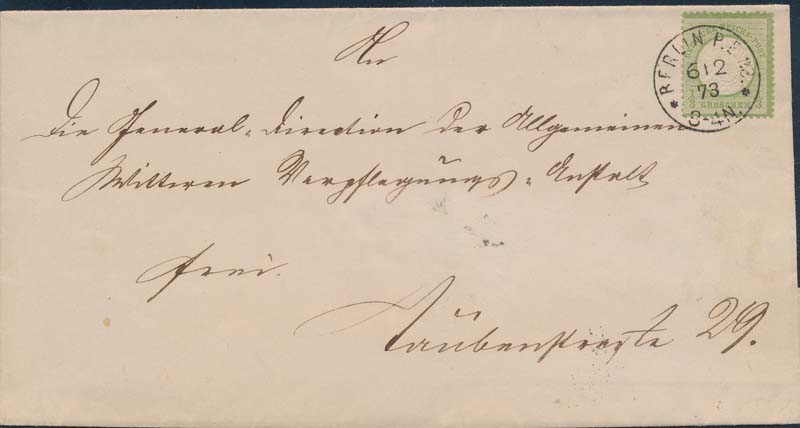 An
Die General-Direction der Allgemeinen
Wittwen Verpflegungs-Anstalt
frei.
Taubenstraße 29.
BERLIN P.E.
6 12
73
3-4N.
REICHS-POST
1/3 GROSCHEN 1/3